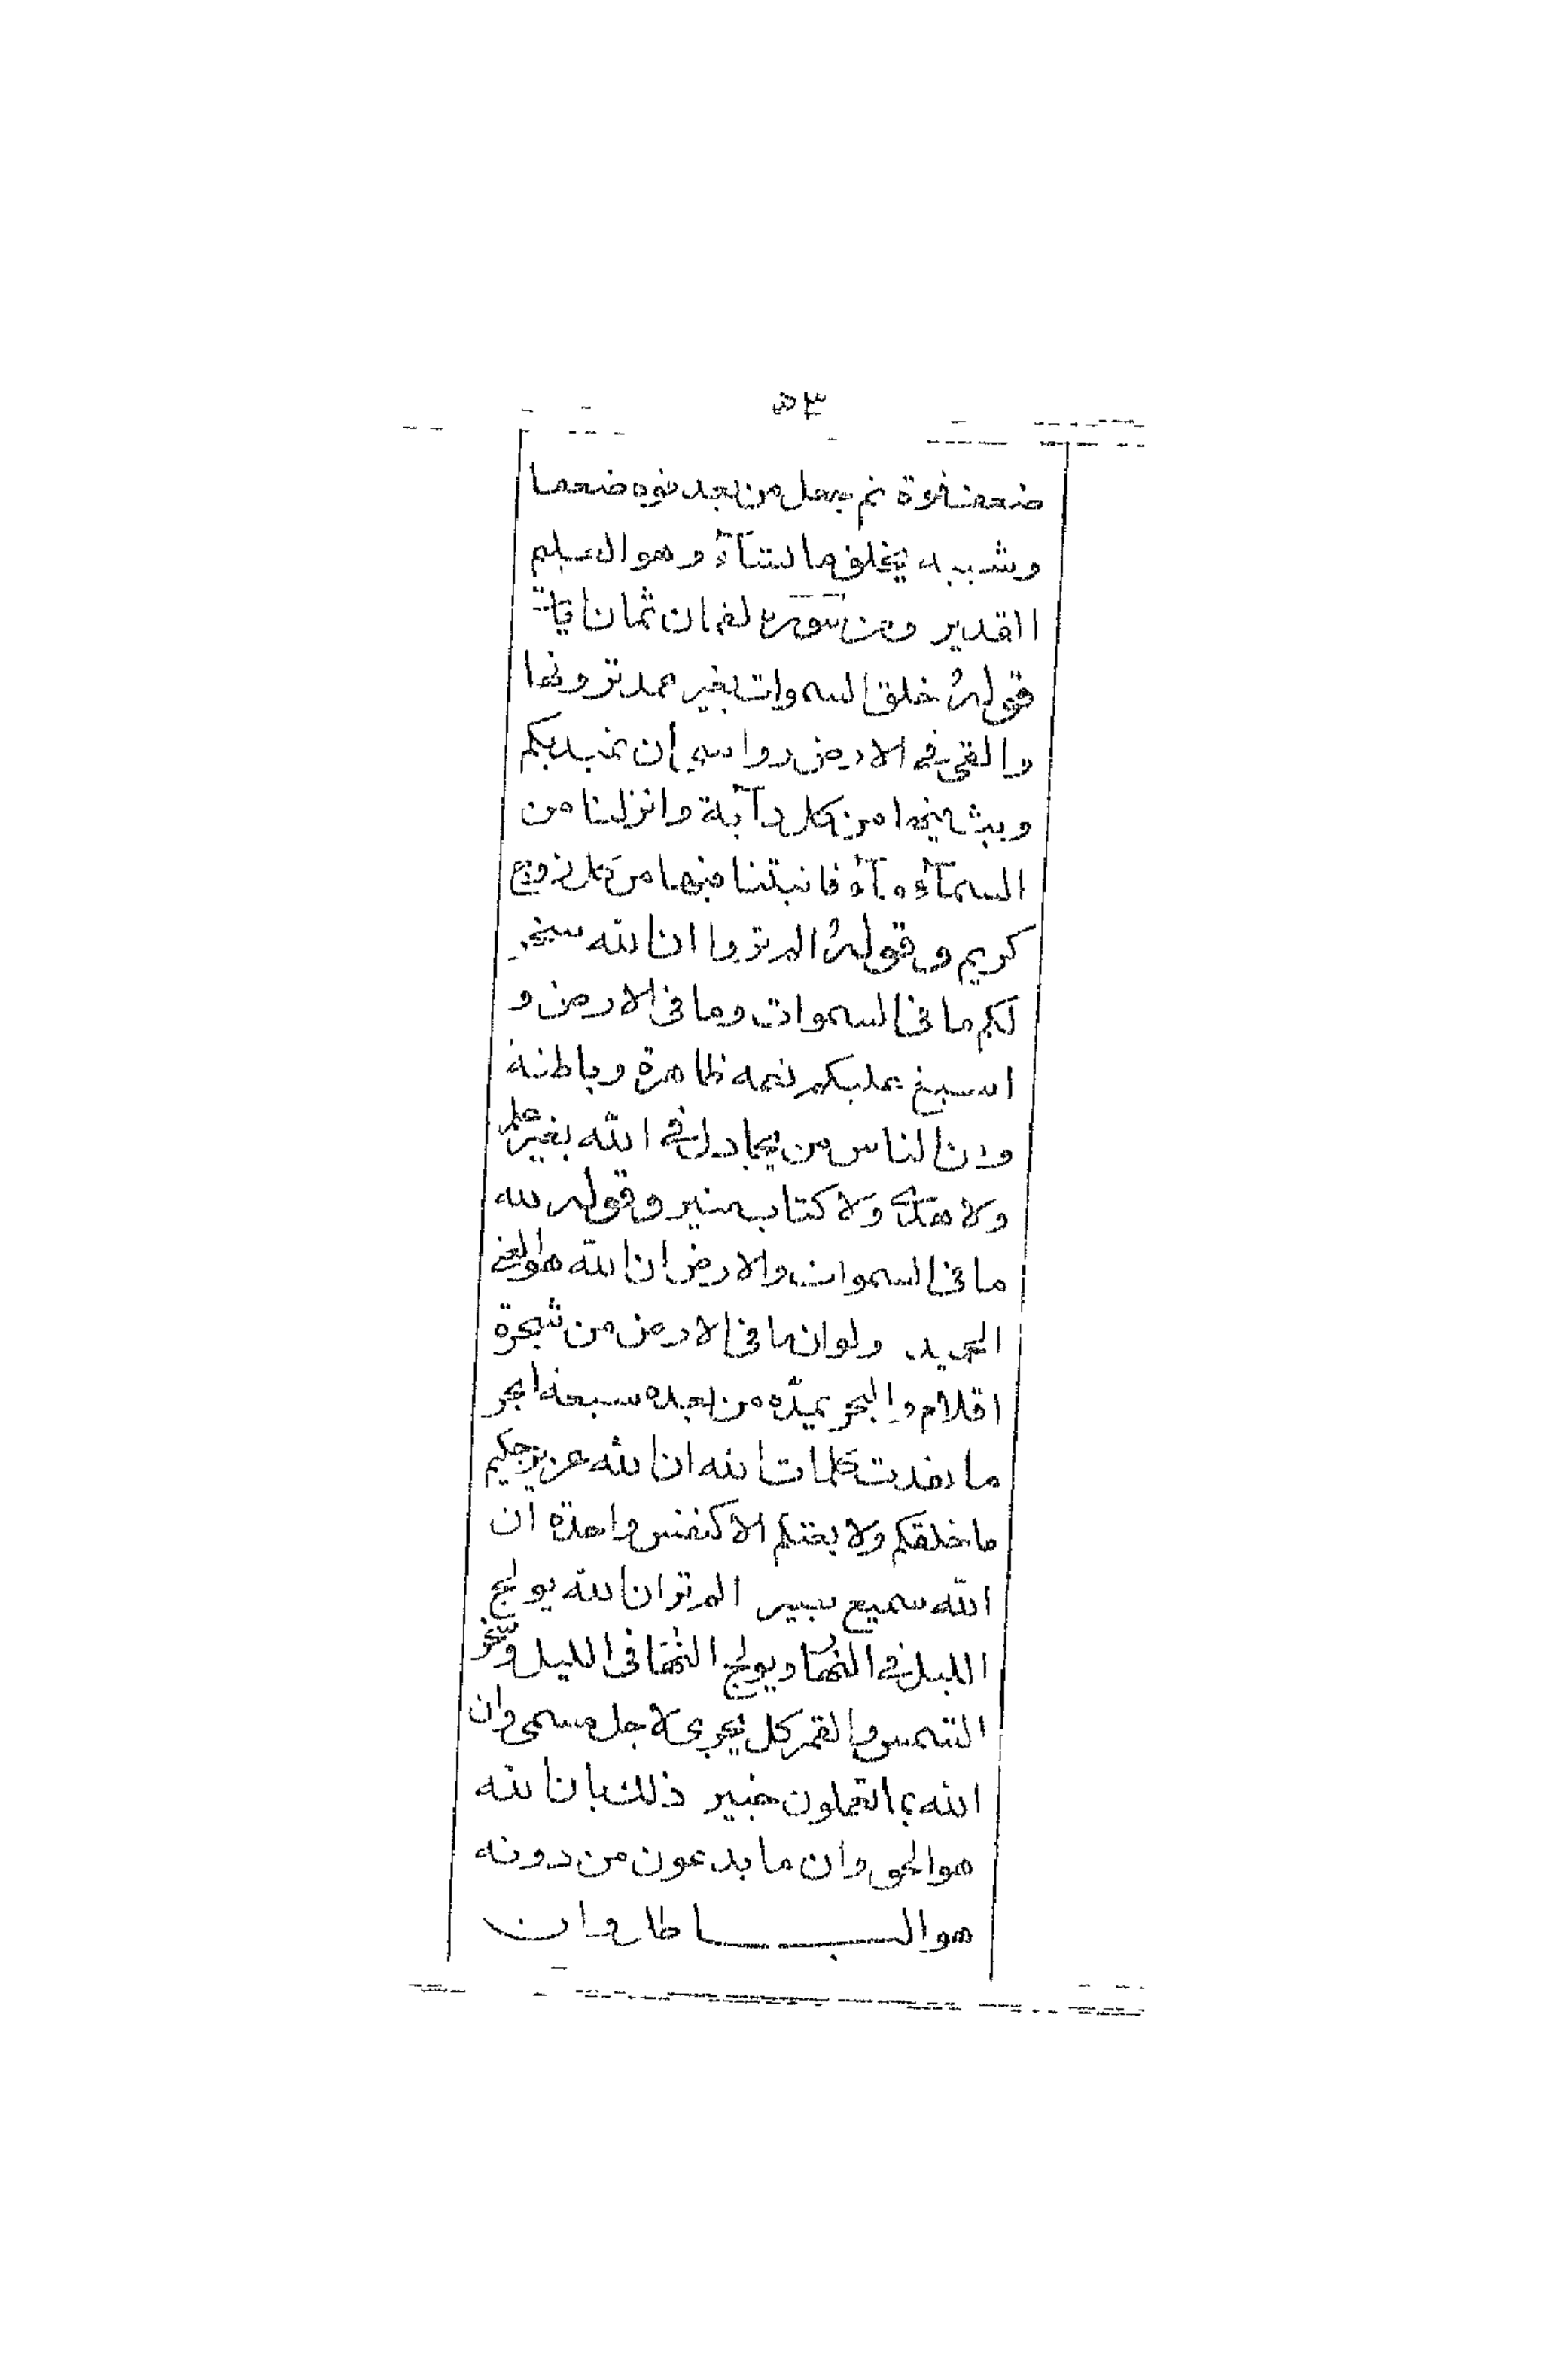 ٥٣
ضعف قوة ثم جعل من بعد قوة ضعفا
وشيبه يخلق ما يشآء وهو العليم
القدير ومن سورة لقمان ثمان ايات
قوله خلق السموات بغير عمد ترونها
والقى في الارض رواسي أن تميد بكم
وبث فيها من كل دآبة وانزلنا من
السمآء مآء فانبتنا فيها من كل زوج
كريم وقوله الم تروا ان الله سخر
لكم ما في السموات وما في الارض و
اسبغ عليكم نعمه ظاهرة وباطنة
ومن الناس من يجادل في الله بغير علم
ولا هدى ولا كتاب منير وقوله لله
ما في السموات والارض ان الله هو الغني
الحميد ولو ان ما في الارض من شجرة
اقلام والبحر يمدّه من بعده سبعة ابحر
ما نفدت كلمات الله ان الله عزيز حكيم
ما خلقكم ولا بعثكم الا كنفس واحدة ان
الله سميع بصير الم تر ان الله يولج
الليل في النهار ويولج النهار في الليل وسخر
الشمس والقمر كل يجري لاجل مسمى وان
الله بما تعملون خبير ذلك بان الله
هو الحق وان ما يدعون من دونه
هو الباطل وان